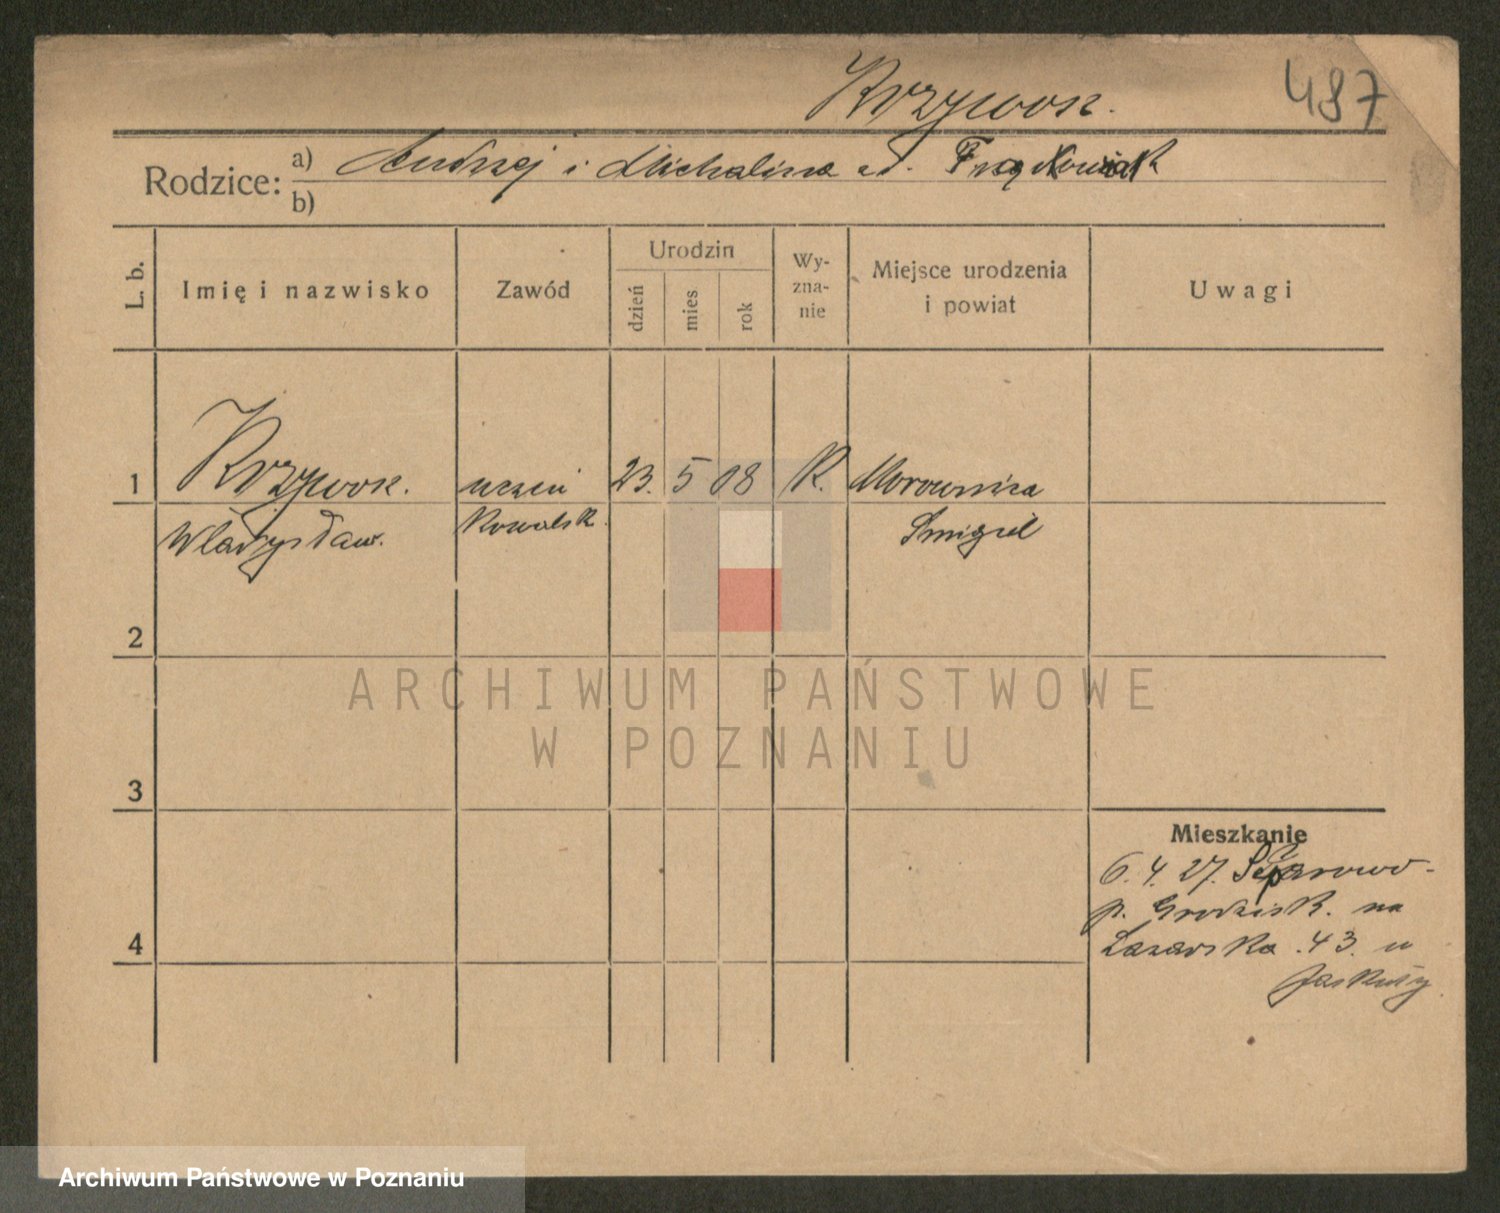 487
Krzywosz.
Rodzice: a) Andrzej i Michalina z d. Frąckowiak
b)
L. b. Imię i nazwisko Zawód Urodzin dzień mies rok Wy-zna-nie Miejsce urodzenia i powiat Uwagi
1 Krzywosz. uczeń 23. 5 08 R. Morownica
Władysław. kowalsk. Śmigiel
2
3
4
Mieszkanie
6. 4. 27.
p. Grodzisk. na
Łazarska . 43. u
Jaskuły
ARCHIWUM PAŃSTWOWE
W POZNANIU
Archiwum Państwowe w Poznaniu